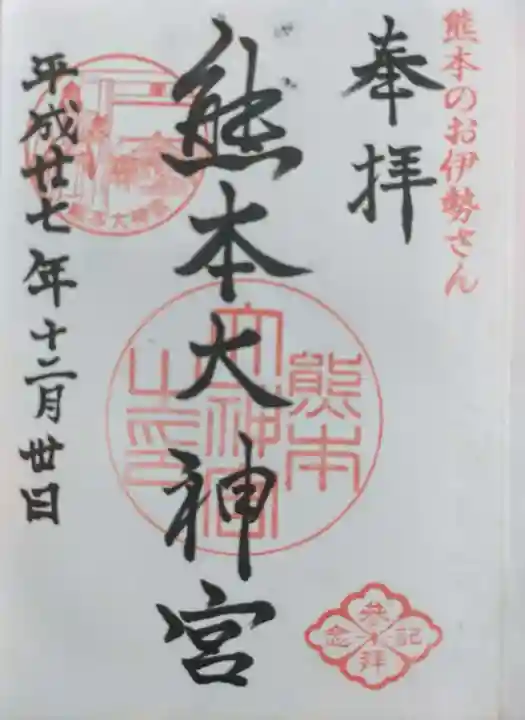 熊本のお伊勢さん
奉拝
熊本大神宮
平成廿七年十二月丗日
熊本
大神宮
之印
熊本大神宮
参拝
記念